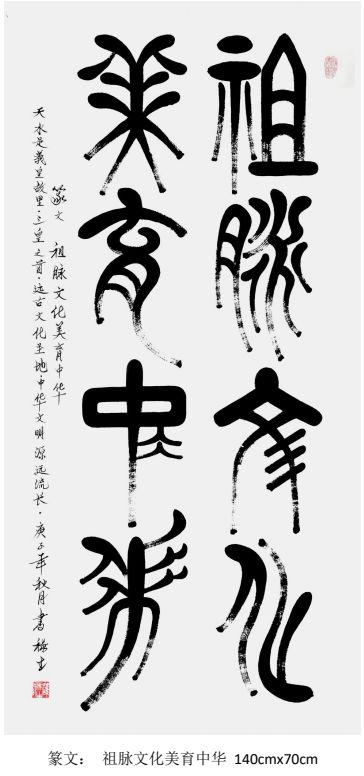 祖脉文化
美育中华
篆文 祖脉文化美育中华
天水是羲皇故里·三皇之首·远古文化圣地·中华文明源远流长·庚子年秋月書
篆文： 祖脉文化美育中华 140cmx70cm